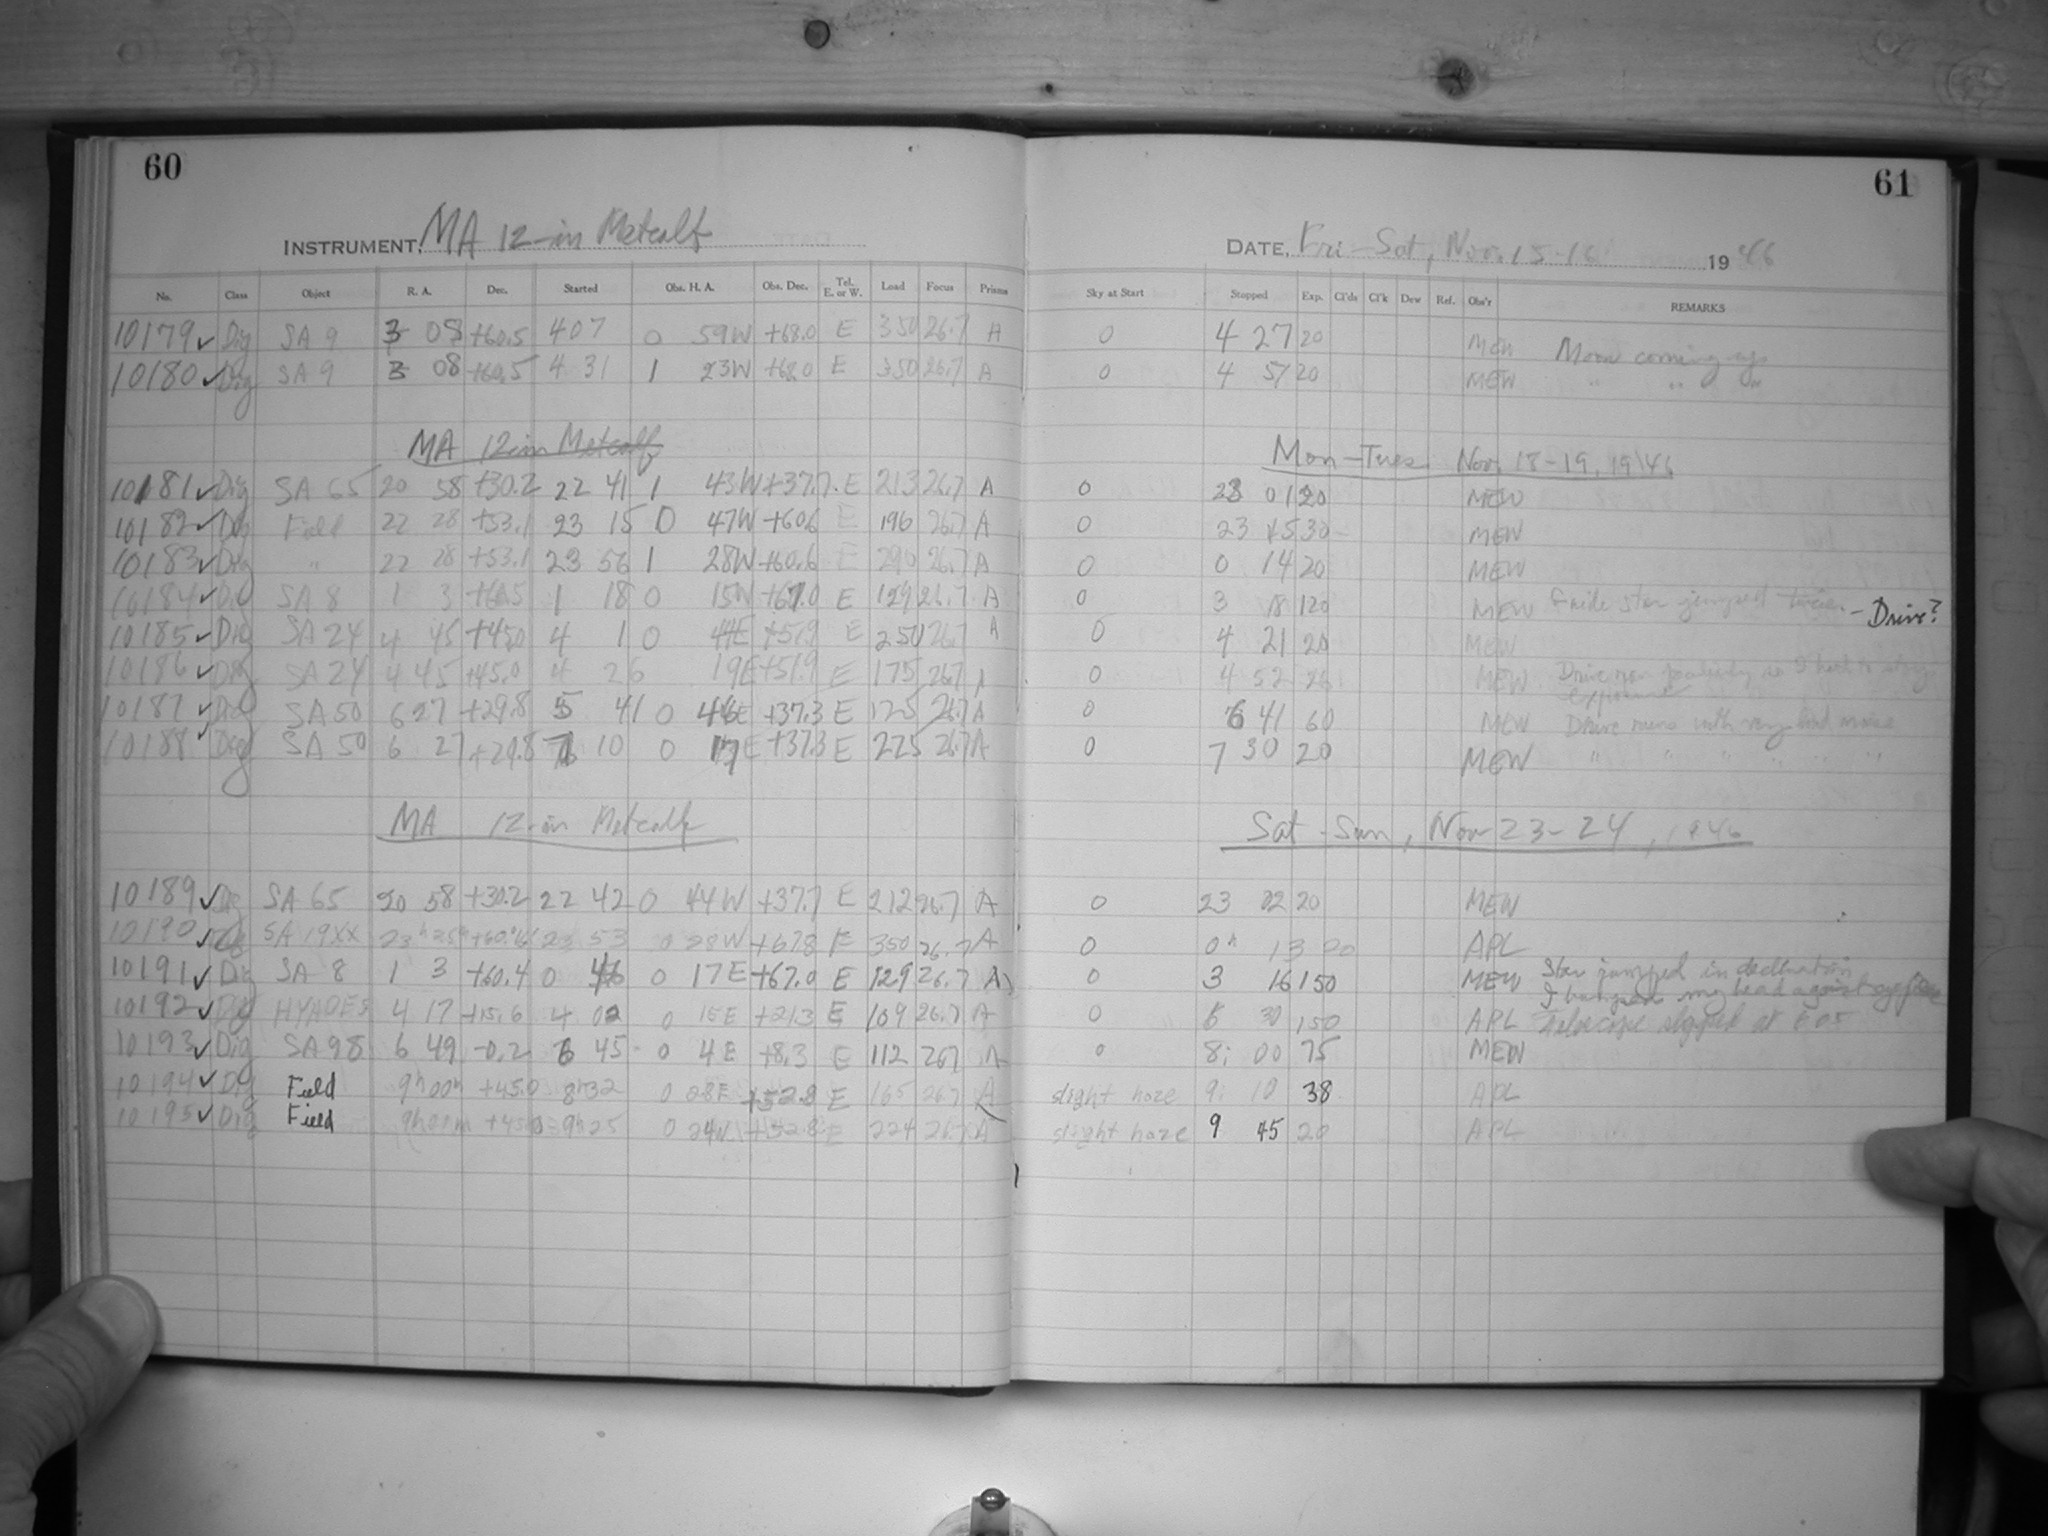 60
61
INSTRUMENT, MA 12-in Metcalf
DATE, Fri-Sat, Nov. 15-16 1946
No. Class Object R. A. Dec. Started Obs. H. A. Obs. Dec. Tel. E. or W. Load Focus Prisms Sky at Start Stopped Exp. Cl'ds Cl'k Dew Ref. Obs'r REMARKS
10179 ✓ Dig SA 9 3 08 +60.5 4 07 0 59W +68.0 E 350 26.7 A 0 4 27 20 MEW Moon coming up
10180 ✓ Dig SA 9 3 08 +60.5 4 31 1 23W +68.0 E 350 26.7 A 0 4 51 20 MEW " " "
MA 12-in Metcalf
Mon-Tues Nov. 18-19, 1946
10181 ✓ Dig SA 65 20 58 +30.2 22 41 1 43W +37.7 E 213 26.7 A 0 23 01 20 MEW
10182 ✓ Dig Field 22 28 +53.1 23 15 0 47W +60.6 E 196 26.7 A 0 23 45 30 MEW
10183 ✓ Dig " 22 28 +53.1 23 56 1 28W +60.6 E 290 26.7 A 0 0 14 20 MEW
10184 ✓ Dig SA 8 1 3 +60.5 1 18 0 15W +67.0 E 129 26.7 A 0 3 18 120 MEW Guide star jumped twice. - Drive?
10185 ✓ Dig SA 24 4 45 +45.0 4 1 0 44E +51.9 E 250 26.7 A 0 4 21 20 MEW
10186 ✓ Dig SA 24 4 45 +45.0 4 26 19E +51.9 E 175 26.7 A 0 4 52 26 MEW Drive ran so I had to stop
exposure
10187 ✓ Dig SA 50 6 27 +29.8 5 41 0 46E +37.3 E 125 26.7 A 0 6 41 60 MEW Drive runs with very loud noise
10188 ✓ Dig SA 50 6 27 +29.8 7 10 0 17E +37.3 E 225 26.7 A 0 7 30 20 MEW " " " " " "
MA 12-in Metcalf
Sat-Sun, Nov 23-24, 1946
10189 ✓ Dig SA 65 20 58 +30.2 22 42 0 44W +37.7 E 212 26.7 A 0 23 02 20 MEW
10190 ✓ Dig SA 19XX 23h 25m +60.6 23 53 0 28W +67.8 E 350 26.7 A 0 0h 13 20 APL
10191 ✓ Dig SA 8 1 3 +60.4 0 46 0 17E +67.0 E 129 26.7 A 0 3 16 150 MEW Star jumped in declination
I banged my head against eyepiece
10192 ✓ Dig HYADES 4 17 +15.6 4 02 0 15E +21.3 E 109 26.7 A 0 6 30 150 APL Telescope slipped at 6 05
10193 ✓ Dig SA 98 6 49 -0.2 6 45 0 4E +8.3 E 112 26.7 A 0 8: 00 75 MEW
10194 ✓ Dig Field 9h 00m +45.0 8h32 0 28E +52.8 E 165 26.7 A slight haze 9: 10 38 APL
10195 ✓ Dig Field 9h 01m +45.0 9h25 0 24W +52.8 E 224 26.7 A slight haze 9 45 20 APL